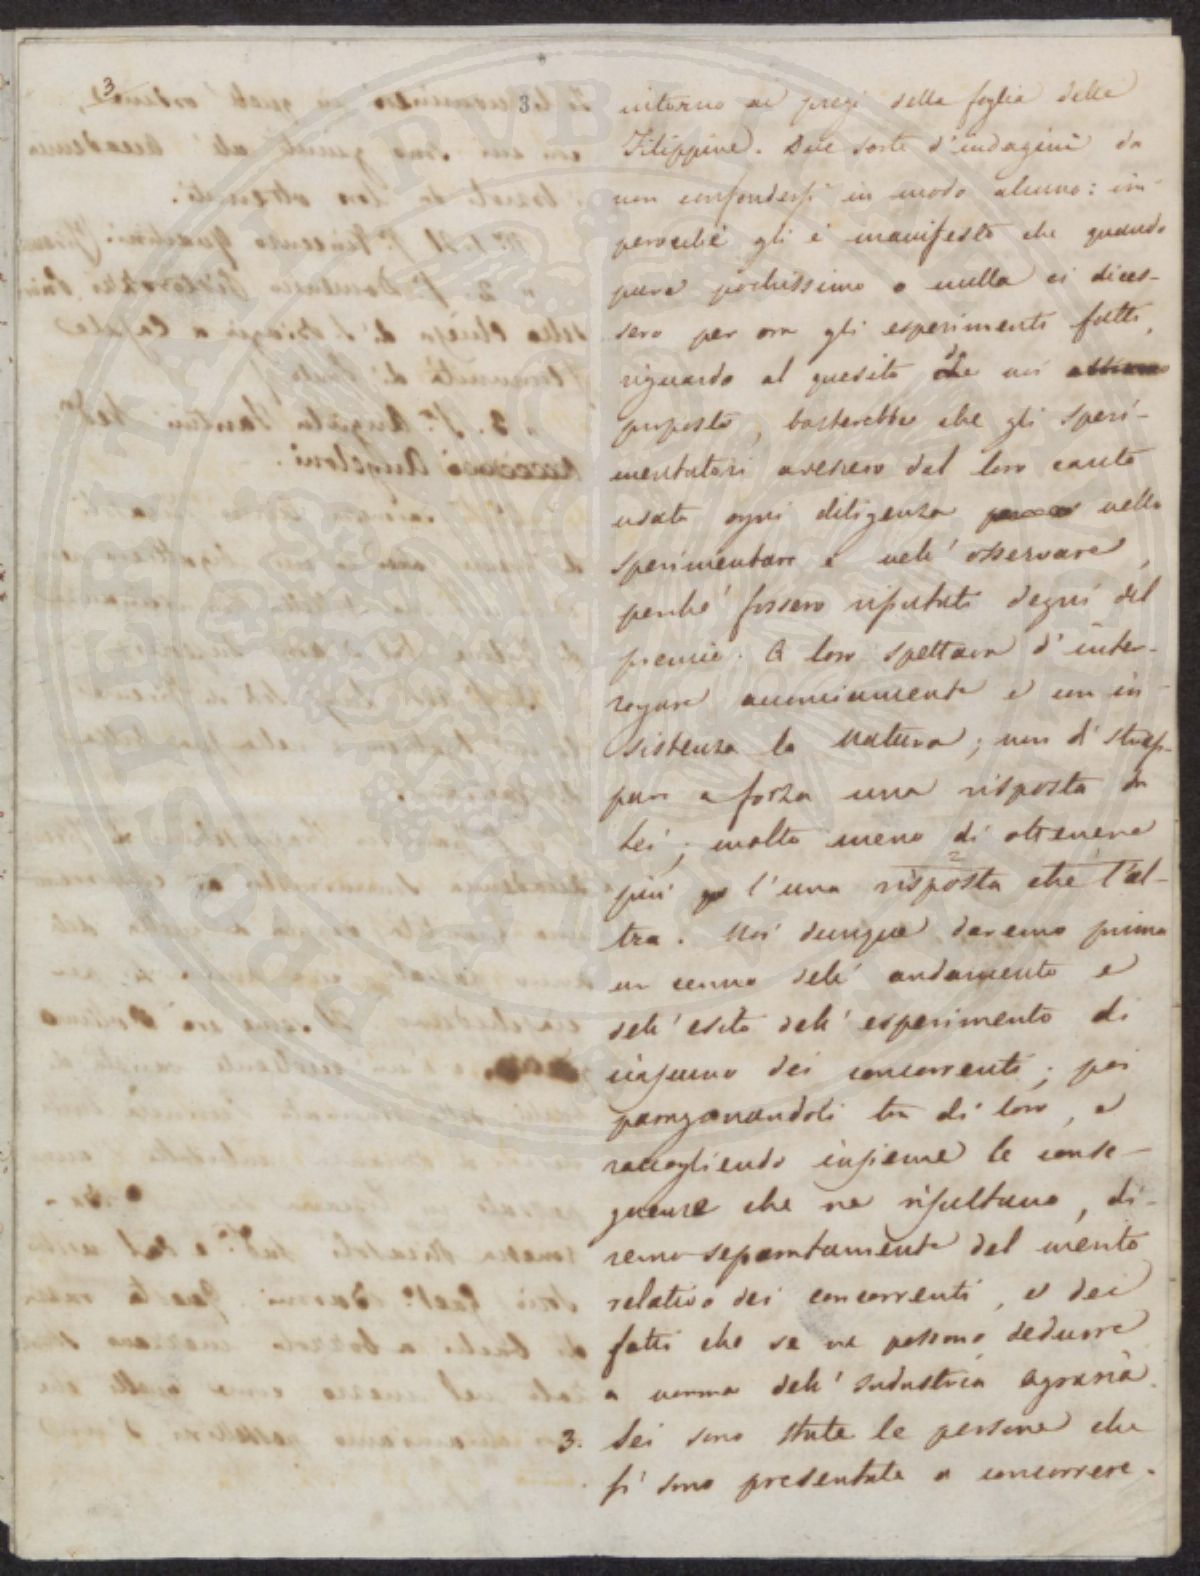 3
3
intorno ai pregi della foglia delle
Filippine. Due sorte d'indagini da
non confondersi in modo alcuno: im-
perocché gli è manifesto che quando
pure pochissimo o nulla ci dices-
sero per ora gli esperimenti fatti,
riguardo al quesito da noi
proposto, basterebbe che gli speri-
mentatori avessero dal loro canto
usata ogni diligenza nello
sperimentare e nell'osservare,
perché fossero riputati degni del
premio. A loro spettava d'inter-
rogare acconciamente e con in-
sistenza la natura; non di strap-
pare a forza una risposta da
Lei; molto meno di ottenere
più l'una risposta che l'al-
tra. Noi dunque daremo prima
un cenno dell'andamento e
dell'esito dell'esperimento di
ciascuno dei concorrenti; poi
paragonandoli tra di loro, e
raccogliendo insieme le conse-
guenze che ne risultano, di-
remo separatamente del merito
relativo dei concorrenti, e dei
fatti che se ne possono dedurre
a norma dell'industria agraria.
3. Sei sono state le persone che
si sono presentate a concorrere.